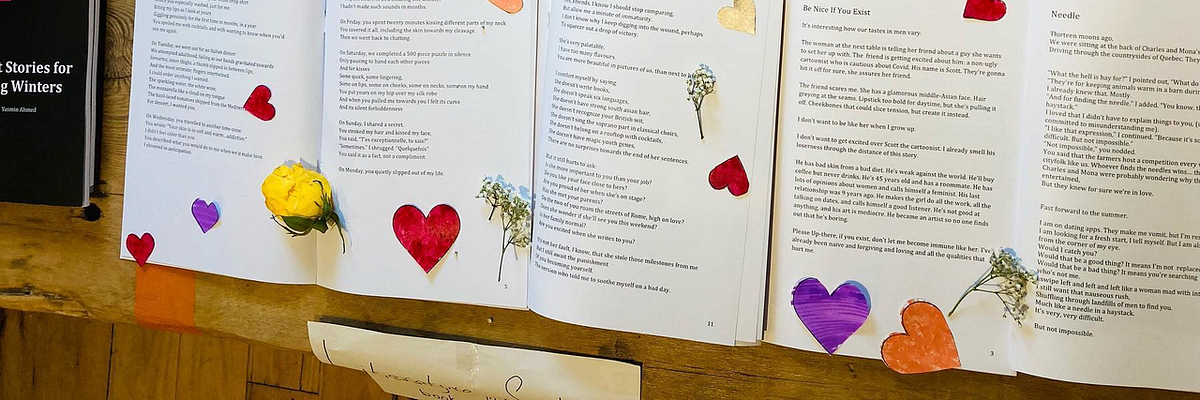 t Stories for
g Winters
Yasmin Ahmed
especially washed, just for me.
Biting my lips as I look at yours.
Giggling genuinely for the first time in months, in a year.
You spoiled me with cocktails, and with wanting to know when you'd
see me again.
On Tuesday, we went out for an Italian dinner
We attempted adulthood, failing as our hands gravitated towards
forearms, inner thighs, a thumb slipped in between lips,
and the most intimate, fingers intertwined.
I could order anything I wanted.
The sparkling water, the white wine,
The mozzarella like a cloud on my tongue
The basil-laced tomatoes shipped from the
For dessert, I wanted you.
On Wednesday, you travelled to another time-zone.
You wrote "Your skin is so soft and warm...addictive."
I didn't feel older than you
You described what you would do to me when we'd make love.
I shivered in anticipation.
I hadn't made such sounds in months.
On Friday, you spent twenty minutes kissing different parts of my neck
You covered it all, including the skin towards my cleavage.
Then we went back to chatting.
On Saturday, we completed a 500 piece puzzle in silence
Only pausing to hand each other pieces
And for kisses
Some quick, some lingering.
Some on lips, some on cheeks, some on necks, some on my hand.
You put yours on my hip over my silk robe
And when you pulled me towards you I felt its curve
And its silent forbiddenness
On Sunday, I shared a secret.
You stroked my hair and kissed my face.
You said, "T'es exceptionnelle, tu sais?"
"Sometimes," I shrugged. "Quelquefois"
You said it as a fact, not a compliment.
On Monday, you quietly slipped out of my life.
5
friends, I know I should stop comparing,
But allow me a minute of immaturity.
I don't know why I keep digging into the wound, perhaps
To squeeze out a drop of victory.
She's very palatable.
I have too many flavours.
You are more beautiful in pictures of us, than next to
I comfort myself by saying:
She doesn't write books,
She doesn't speak six languages,
She doesn't have strong south asian hair,
She doesn't recognize your British wit.
She doesn't sing the soprano part in classical choirs,
She doesn't belong on a rooftop with cocktails,
She doesn't have magic youth genes,
There are no surprises towards the end of her sentences.
But it still hurts to ask:
Is she more important to you than your job?
Do you like your face close to hers?
Are you proud of her when she's on stage?
Has she met your parents?
Do the two of you roam the streets of Rome, high on love?
Does she wonder if she'll see you this weekend?
Is her family normal?
Are you excited when she writes to you?
It's not her fault, I know, that she stole those milestones from me
But I still await the punishment
Of you becoming yourself.
The version who told me to soothe myself on a bad day.
11
Be Nice If You Exist
It's interesting how our tastes in men vary.
The woman at the next table is telling her friend about a guy she wants
to set her up with. The friend is getting excited about him: a non-ugly
cartoonist who is cautious about Covid. His name is Scott. They're gonna
hit it off for sure, she assures her friend.
The friend scares me. She has a glamorous middle-Asian face. Hair
greying at the seams. Lipstick too bold for daytime, but she's pulling it
off. Cheekbones that could slice tension, but create it instead.
I don't want to be like her when I grow up.
I don't want to get excited over Scott the cartoonist. I already smell his
loserness through the distance of this story.
He has bad skin from a bad diet. He's weak against the world. He'll buy
coffee but never drinks. He's 45 years old and has a roommate. He has
lots of opinions about women and calls himself a feminist. His last
relationship was 9 years ago. He makes the girl do all the work, all the
talking on dates, and calls himself a good listener. He's not good at
anything, and his art is mediocre. He became an artist so no one finds
out that he's boring.
Please Up-there, if you exist, don't let me become immune like her. I've
already been naive and forgiving and loving and all the qualities that
hurt me.
3
Needle
Thirteen moons ago,
We were sitting at the back of Charles and Mona'
Driving through the countryside of Quebec. They
"What the bell is hay for?" I pointed out, "What do
"They're for keeping animals warm in a barn durin
I already knew that. Mostly.
"And for finding the needle," I added. "You know,
haystack."
I loved that I didn't have to explain things to you, (
committed to misunderstanding me).
"I like that expression," I continued. "Because it's s
difficult. But not impossible."
"Not impossible," you nodded.
You said that the farmers host a competition every
cityfolk like us. Whoever finds the needles wins... th
Charles and Mona were probably wondering why the
entertained,
But they knew for sure we're in love.
Fast forward to the summer.
I am on dating apps. They make me vomit, but I'm res
I am looking for a fresh start, I tell myself. But I am als
from the corner of my eye.
Would I catch you?
Would that be a good thing? It means I'm not replace
Would that be a bad thing? It means you're searching
who's not me.
I swipe left and left and left like a woman mad with ins
I still want that nauseous rush.
Shuffling through landfills of men to find you.
Much like a needle in a haystack.
It's very, very difficult.
But not impossible.